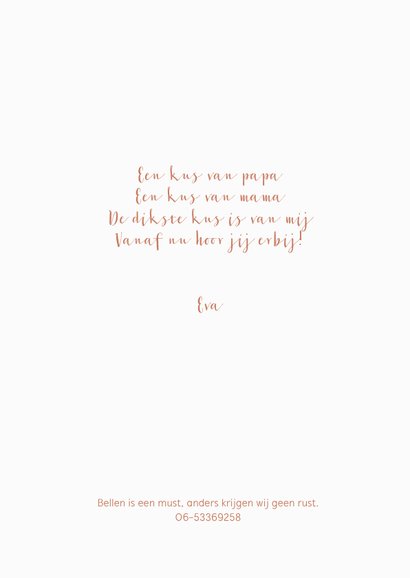 Een kus van papa
Een kus van mama
De dikste kus is van mij
Vanaf nu hoor jij erbij!
Eva
Bellen is een must, anders krijgen wij geen rust.
06-53369258